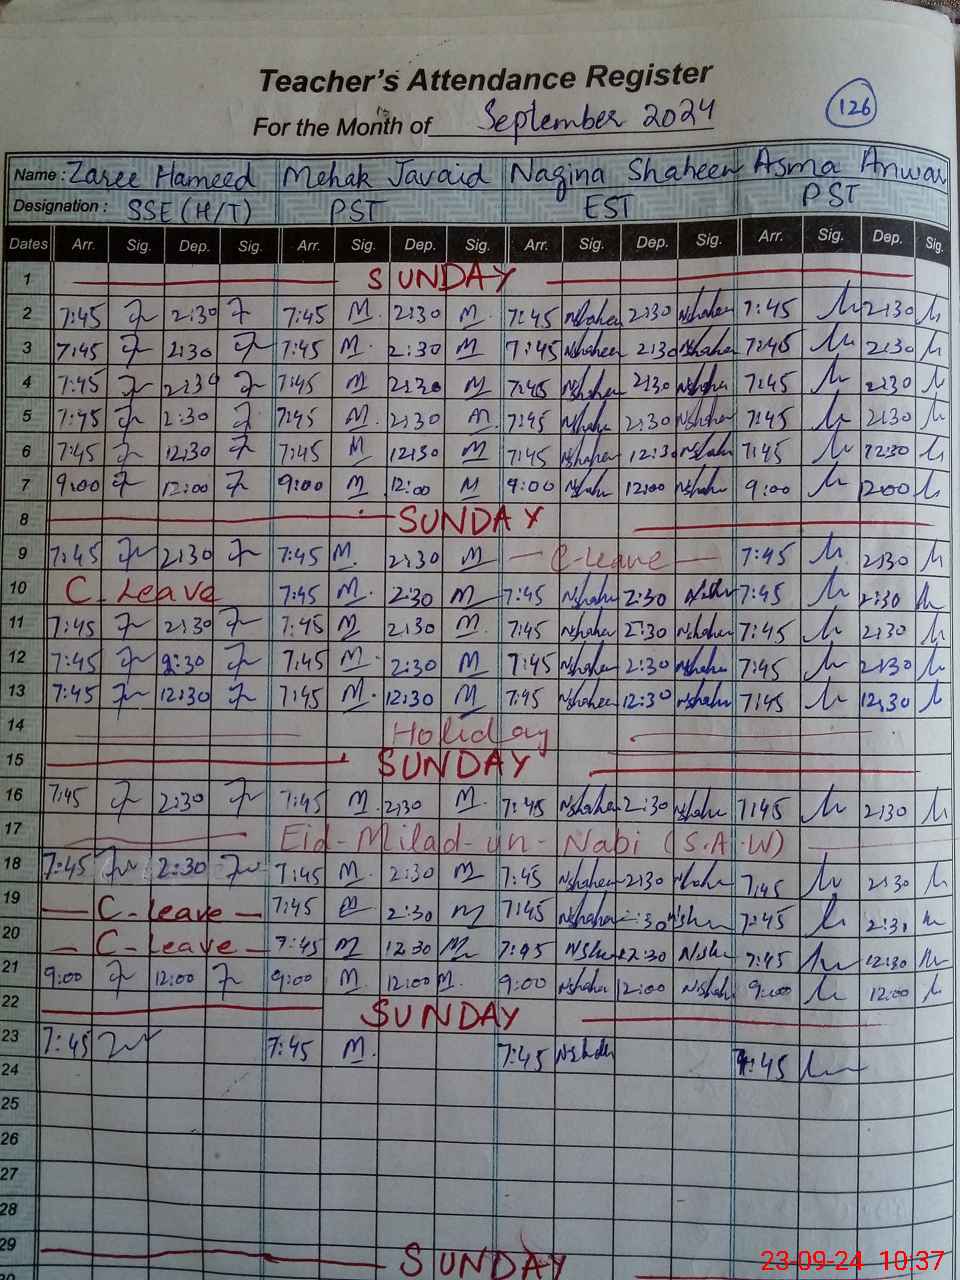 Teacher's Attendance Register
For the Month of September 2024
126
Name : Zaree Hameed Mehak Javaid Nagina Shaheen Asma Anwar
Designation : SSE (H/T) PST EST PST
Dates Arr. Sig. Dep. Sig. Arr. Sig. Dep. Sig. Arr. Sig. Dep. Sig. Arr. Sig. Dep. Sig.
1 SUNDAY
2 7:45 2:30 7:45 M. 2:30 M. 7:45 Nshaheen 2:30 Nshaheen 7:45 2:30
3 7:45 2:30 7:45 M. 2:30 M 7:45 Nshaheen 2:30 Nshaheen 7:45 2:30
4 7:45 2:30 7:45 M 2:30 M 7:45 Nshaheen 2:30 7:45 2:30
5 7:45 2:30 7:45 M. 2:30 M. 7:45 2:30 7:45 2:30
6 7:45 12:30 7:45 M 12:30 M 7:45 12:30 7:45 12:30
7 9:00 12:00 9:00 M 12:00 M 9:00 12:00 9:00 12:00
8 SUNDAY
9 7:45 2:30 7:45 M. 2:30 M C-leave 7:45 2:30
10 C. Leave 7:45 M. 2:30 M 7:45 2:30 7:45 2:30
11 7:45 2:30 7:45 M 2:30 M. 7:45 2:30 7:45 2:30
12 7:45 2:30 7:45 M. 2:30 M 7:45 2:30 7:45 2:30
13 7:45 12:30 7:45 M. 12:30 M 7:45 Nshaheen 12:30 7:45 12:30
14 Holiday
15 SUNDAY
16 7:45 2:30 7:45 M. 2:30 M. 7:45 2:30 7:45 2:30
17 Eid-Milad-un-Nabi (S.A.W)
18 7:45 2:30 7:45 M. 2:30 M 7:45 Nshaheen 2:30 7:45 2:30
19 C-leave 7:45 M 2:30 M 7:45 2:30 7:45 2:30
20 C-leave 7:45 M 12:30 M 7:45 12:30 7:45 12:30
21 9:00 12:00 9:00 M. 12:00 M. 9:00 12:00 9:00 12:00
22 SUNDAY
23 7:45 7:45 M. 7:45 7:45
24
25
26
27
28
29 SUNDAY
23-09-24 10:37